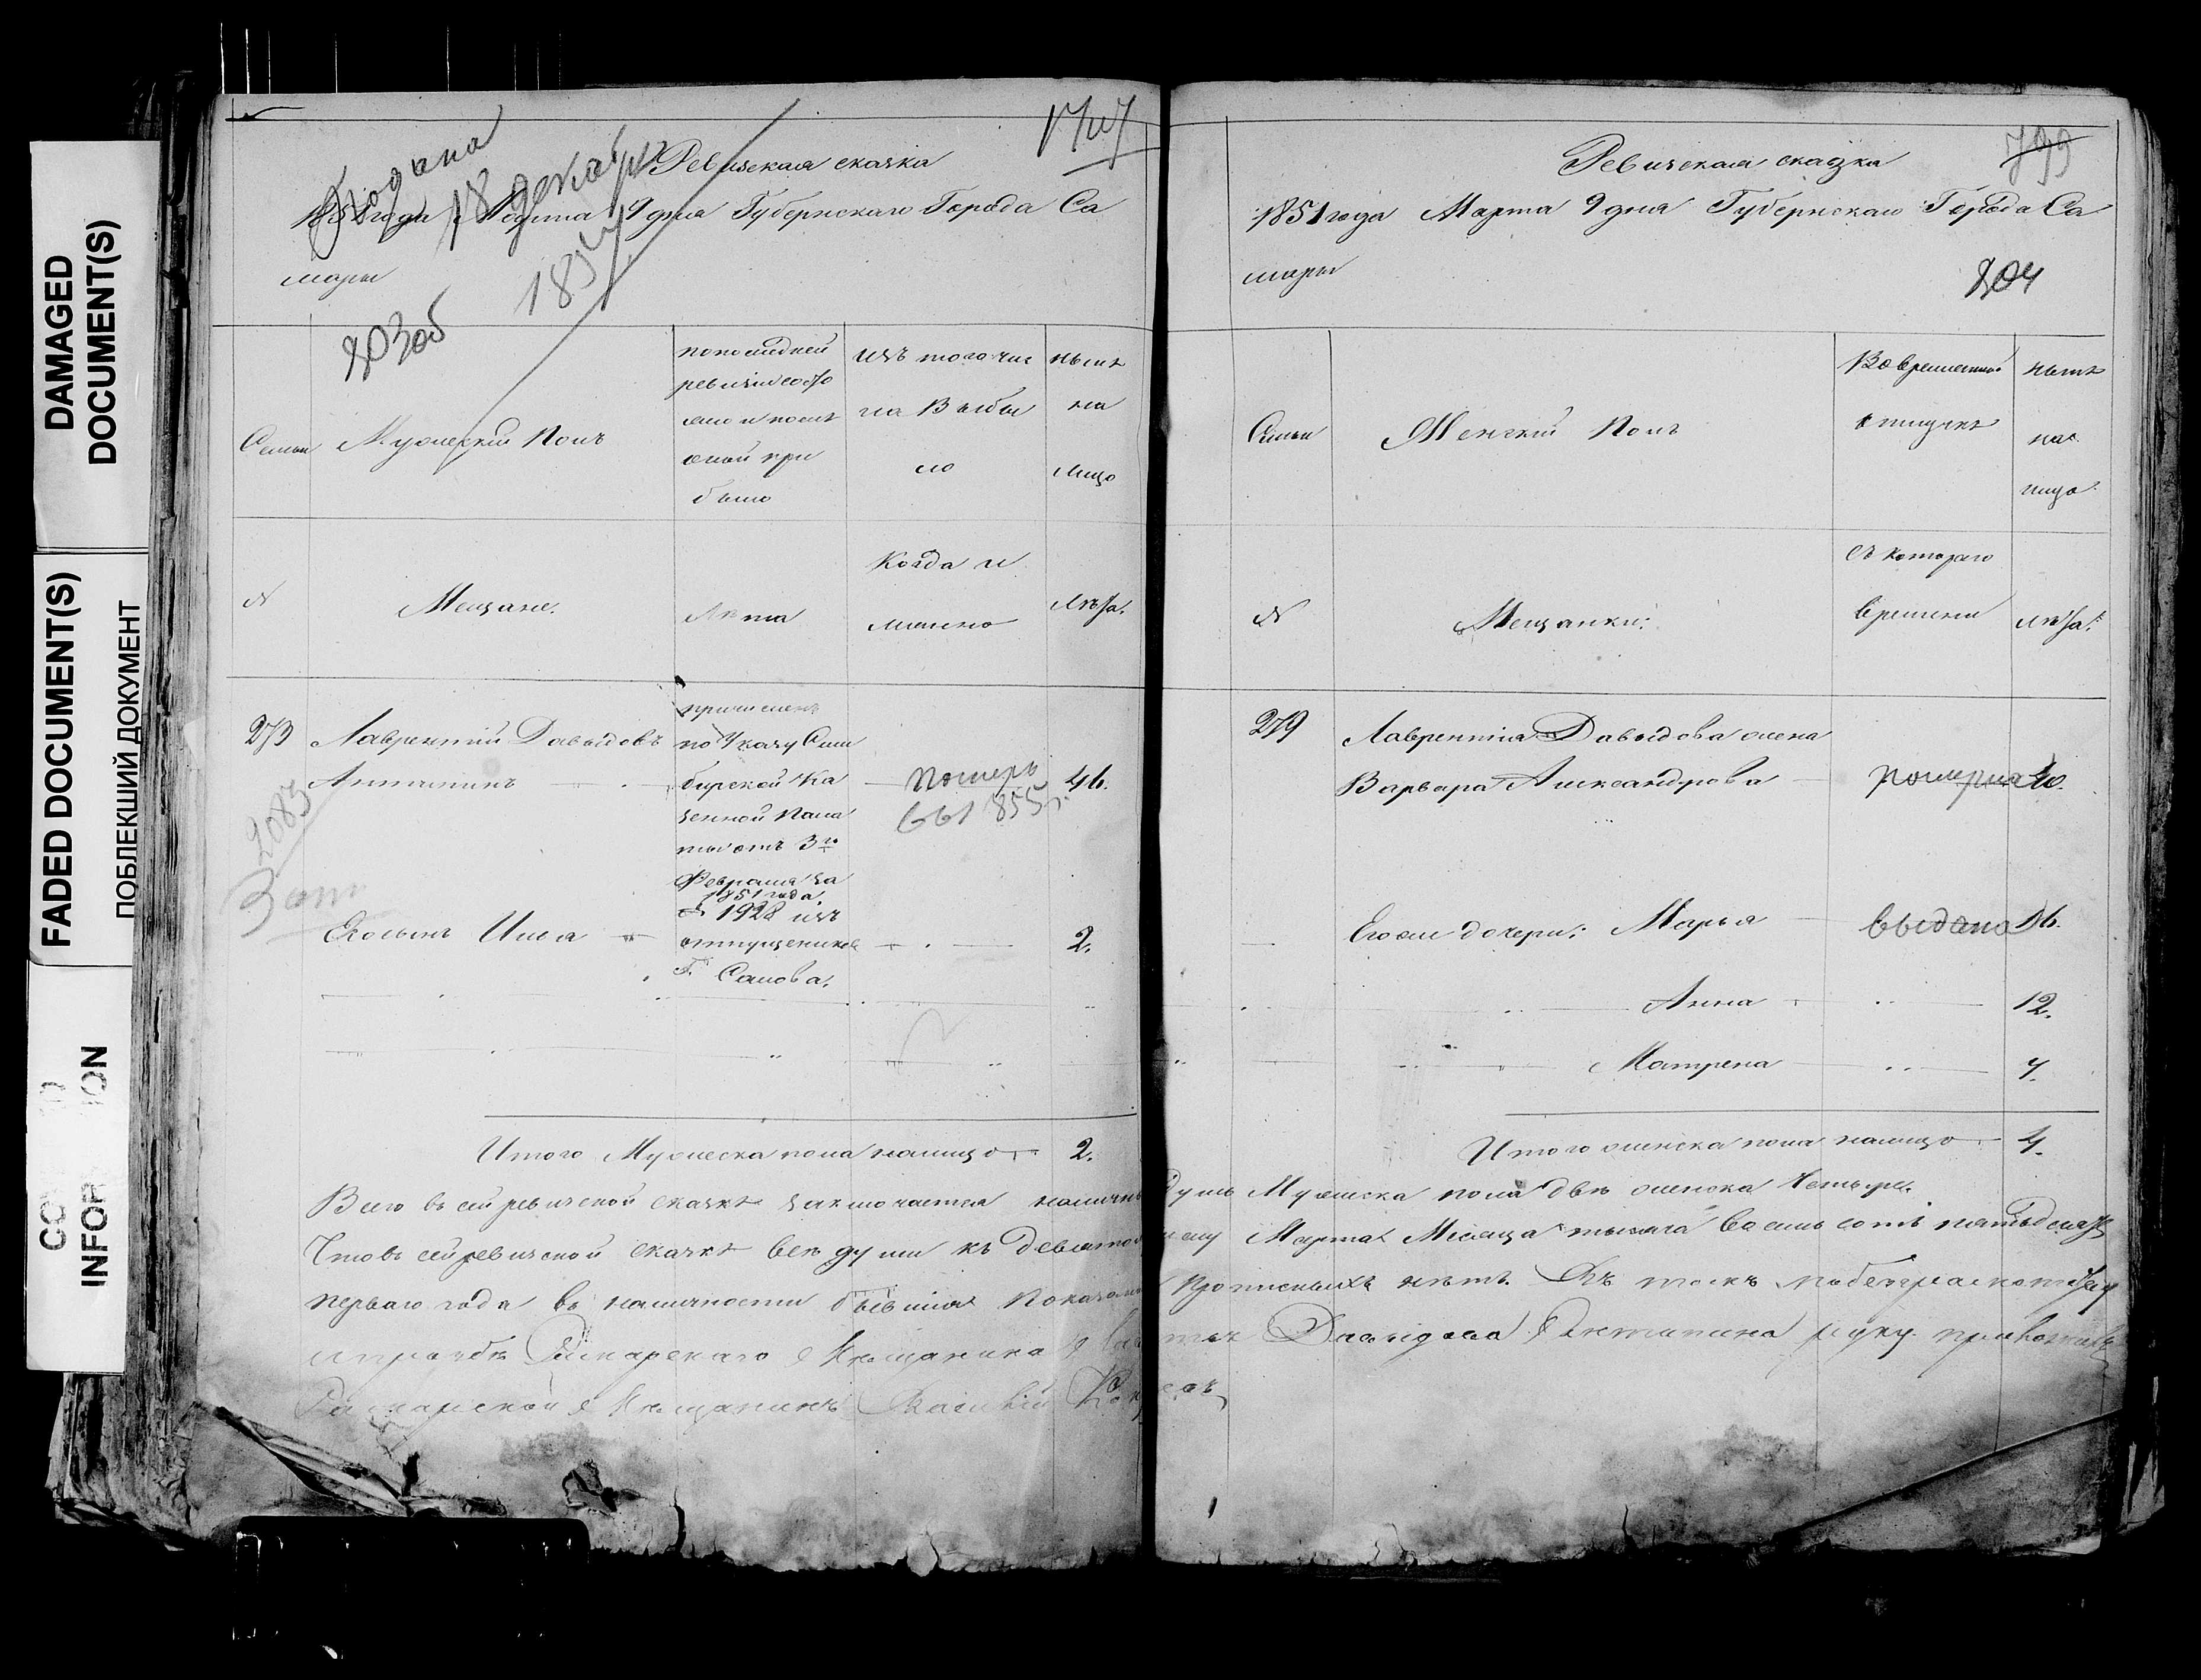 DAMAGED
DOCUMENT(S)
FADED DOCUMENT(S)
ПОБЛЕКШИЙ ДОКУМЕНТ
Подана
18 декабря
185
Ревизская сказка
1851 года Марта 9 дня Губернскаго Города Са
мары
803об
Семьи
Мужеский Полъ
по последней
ревизии состо
яло и после
оной при
было
изъ того чис
ла Выбы
ло
ныне
на
лицо
N
Мещане.
Лета
Когда и
именно
Лета.
273
Лаврентий Давыдовъ
Антипинъ
2083
причисленъ
по Указу Сим
бирской Ка
зенной Пала
ты отъ 3го
Февраля за
1851 года.
N 1928 изъ
отпущениковъ
Г.
померъ
въ 1855 г.
46.
Его сынъ Илья
2.
Итого Мужеска пола налицо
2.
Ревизская сказка
799
1851 года Марта 9 дня Губернскаго Города Са
мары
804
Семьи
Женский Полъ
Во временной
отлучке
ныне
на
лицо
N
Мещанки:
Съ котораго
времени
Лета.
279
Лаврентия Давыдова жена
Варвара Александрова
померла
40.
Его же дочери: Марья
выдана
16.
Анна
12.
Матрена
Итого женска пола налицо
4.
Всего въ сей ревизской сказке заключается наличн душъ Мужеска пола две женска Четыре.
Что въ сей ревизской сказке все души къ девятому Марта Месяца тысяча восемь сотъ пятьдесятъ
перваго года въ наличности бывшия показаны прописныхъ нетъ. Въ томъ
Самарскаго Мещанина Давыдова Антипина руку приложилъ
Самарской Мещанинъ